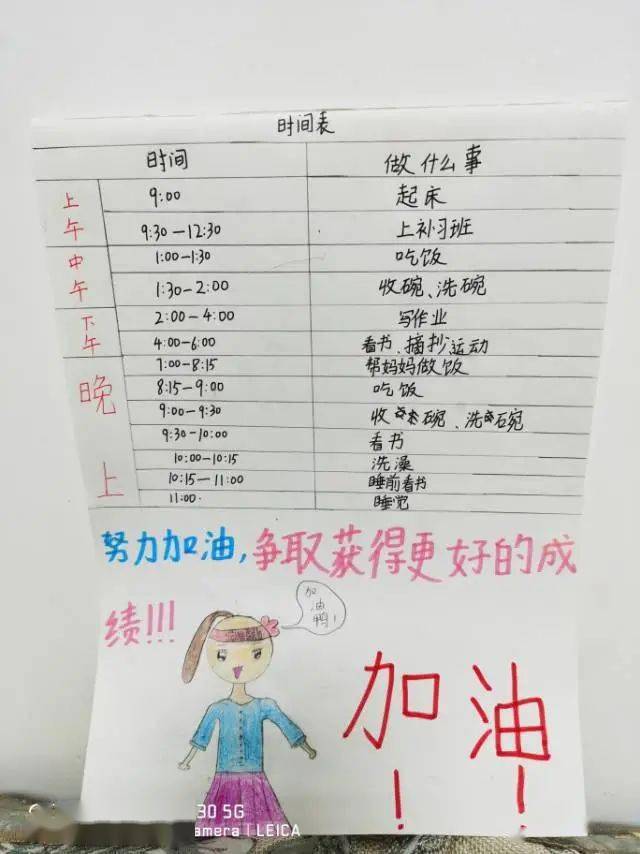 时间表
时间 做什么事
上午 9:00 起床
9:30-12:30 上补习班
中午 1:00-1:30 吃饭
1:30-2:00 收碗、洗碗
下午 2:00-4:00 写作业
4:00-6:00 看书、摘抄运动
晚上 7:00-8:15 帮妈妈做饭
8:15-9:00 吃饭
9:00-9:30 收碗、洗碗
9:30-10:00 看书
10:00-10:15 洗澡
10:15-11:00 睡前看书
11:00. 睡觉
努力加油,争取获得更好的成
绩!!!
加油鸭!
加油!!
30 5G
amera | LEICA